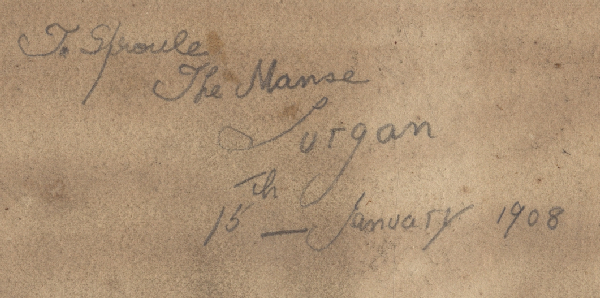 T. Sproule
The Manse
Lurgan
15th January 1908